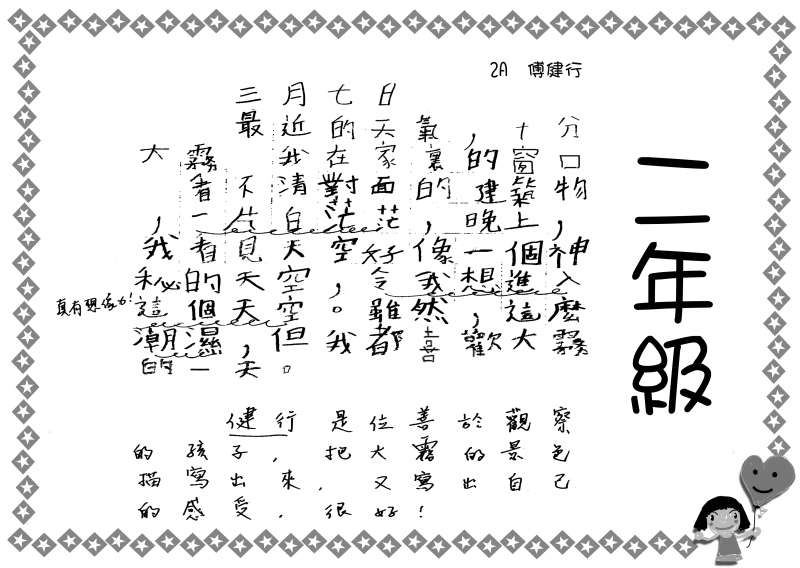 2A 傅健行
二年級
三月七日
最近的天氣十分
大霧，我在家裏的窗口
看不清對面的建築物
，一片白茫茫，晚上，
我看見天空好像一個神
秘的天空，令我想進入
這個天空。雖然，這麼
潮濕，但我都喜歡大霧
的一天。
真有想像力!
健行是位善於觀察
的孩子，把大霧的景色
描寫出來，又寫出自己
的感受，很好!